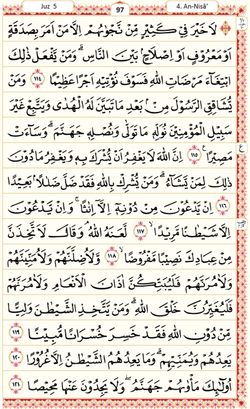 Juz 5
97
4. An-Nisā'
لَا خَيْرَ فِيْ كَثِيْرٍ مِّنْ نَّجْوٰىهُمْ اِلَّا مَنْ اَمَرَ بِصَدَقَةٍ
اَوْ مَعْرُوْفٍ اَوْ اِصْلَاحٍۢ بَيْنَ النَّاسِۗ وَمَنْ يَّفْعَلْ ذٰلِكَ
ابْتِغَاۤءَ مَرْضَاتِ اللّٰهِ فَسَوْفَ نُؤْتِيْهِ اَجْرًا عَظِيْمًا ١١٤ وَمَنْ
يُّشَاقِقِ الرَّسُوْلَ مِنْۢ بَعْدِ مَا تَبَيَّنَ لَهُ الْهُدٰى وَيَتَّبِعْ غَيْرَ
سَبِيْلِ الْمُؤْمِنِيْنَ نُوَلِّهٖ مَا تَوَلّٰى وَنُصْلِهٖ جَهَنَّمَۗ وَسَاۤءَتْ
مَصِيْرًا ١١٥ اِنَّ اللّٰهَ لَا يَغْفِرُ اَنْ يُّشْرَكَ بِهٖ وَيَغْفِرُ مَا دُوْنَ
ذٰلِكَ لِمَنْ يَّشَاۤءُۗ وَمَنْ يُّشْرِكْ بِاللّٰهِ فَقَدْ ضَلَّ ضَلٰلًاۢ بَعِيْدًا
١١٦ اِنْ يَّدْعُوْنَ مِنْ دُوْنِهٖٓ اِلَّآ اِنٰثًاۚ وَاِنْ يَّدْعُوْنَ
اِلَّا شَيْطٰنًا مَّرِيْدًاۙ ١١٧ لَّعَنَهُ اللّٰهُۘ وَقَالَ لَاَتَّخِذَنَّ
مِنْ عِبَادِكَ نَصِيْبًا مَّفْرُوْضًاۙ ١١٨ وَّلَاُضِلَّنَّهُمْ وَلَاُمَنِّيَنَّهُمْ
وَلَاٰمُرَنَّهُمْ فَلَيُبَتِّكُنَّ اٰذَانَ الْاَنْعَامِ وَلَاٰمُرَنَّهُمْ
فَلَيُغَيِّرُنَّ خَلْقَ اللّٰهِۗ وَمَنْ يَّتَّخِذِ الشَّيْطٰنَ وَلِيًّا
مِّنْ دُوْنِ اللّٰهِ فَقَدْ خَسِرَ خُسْرَانًا مُّبِيْنًاۗ ١١٩
يَعِدُهُمْ وَيُمَنِّيْهِمْۗ وَمَا يَعِدُهُمُ الشَّيْطٰنُ اِلَّا غُرُوْرًا ١٢٠
اُولٰۤىِٕكَ مَأْوٰىهُمْ جَهَنَّمُۖ وَلَا يَجِدُوْنَ عَنْهَا مَحِيْصًا ١٢١